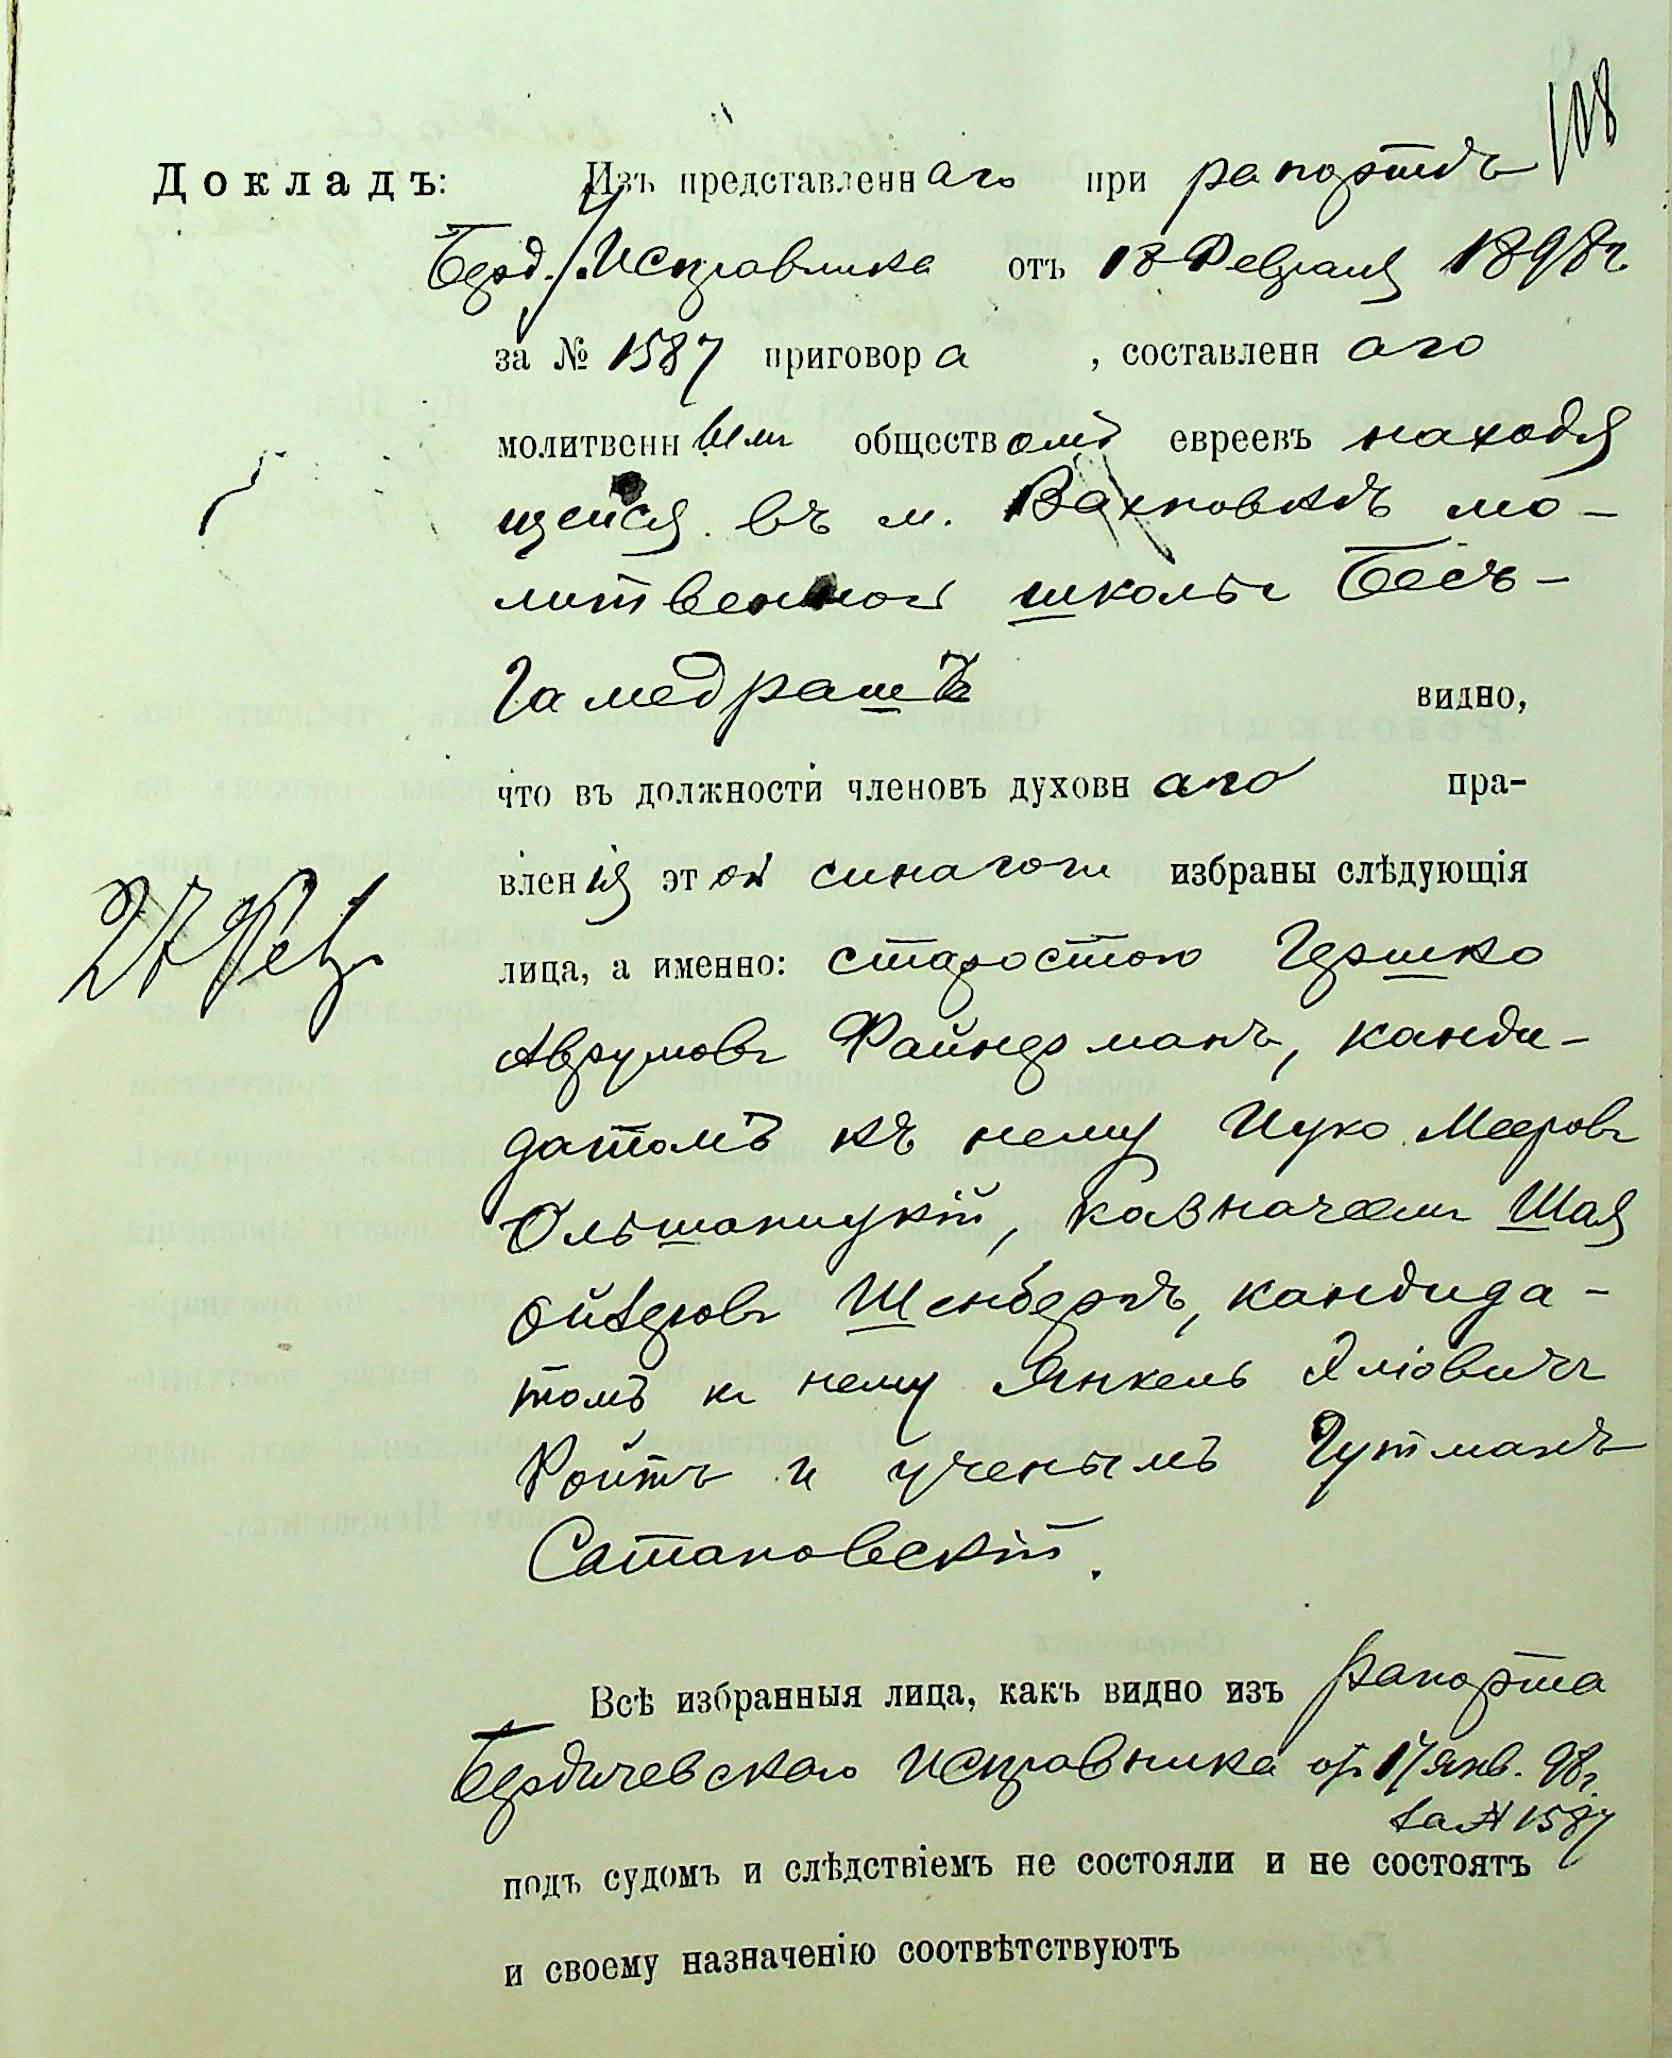 108
Докладъ: Изъ представленнаго при рапортѣ
Берд. Исправника отъ 18 Февраля 1898 г.
за № 1587 приговора, составленнаго
молитвеннымъ обществомъ евреевъ находя
щейся въ м. Вахновкѣ мо-
литвенной школы Бесъ-
Гамедрашъ видно,
что въ должности членовъ духовнаго пра-
вленія этой синагоги избраны слѣдующія
27 Февр
лица, а именно: старостою Гершко
Аврумовъ Файнерманъ, канди-
датомъ къ нему Ицко Мееровъ
Ольшаницкій, казначеемъ Шая
Ойзеровъ Шенбергъ, кандида-
томъ къ нему Янкель Эліовичъ
Ройтъ и ученымъ Гутманъ
Сатановскій.
Всѣ избранныя лица, какъ видно изъ рапорта
Бердичевскаго Исправника от 17 янв. 98 г.
за № 1587
подъ судомъ и слѣдствіемъ не состояли и не состоятъ
и своему назначенію соотвѣтствуютъ